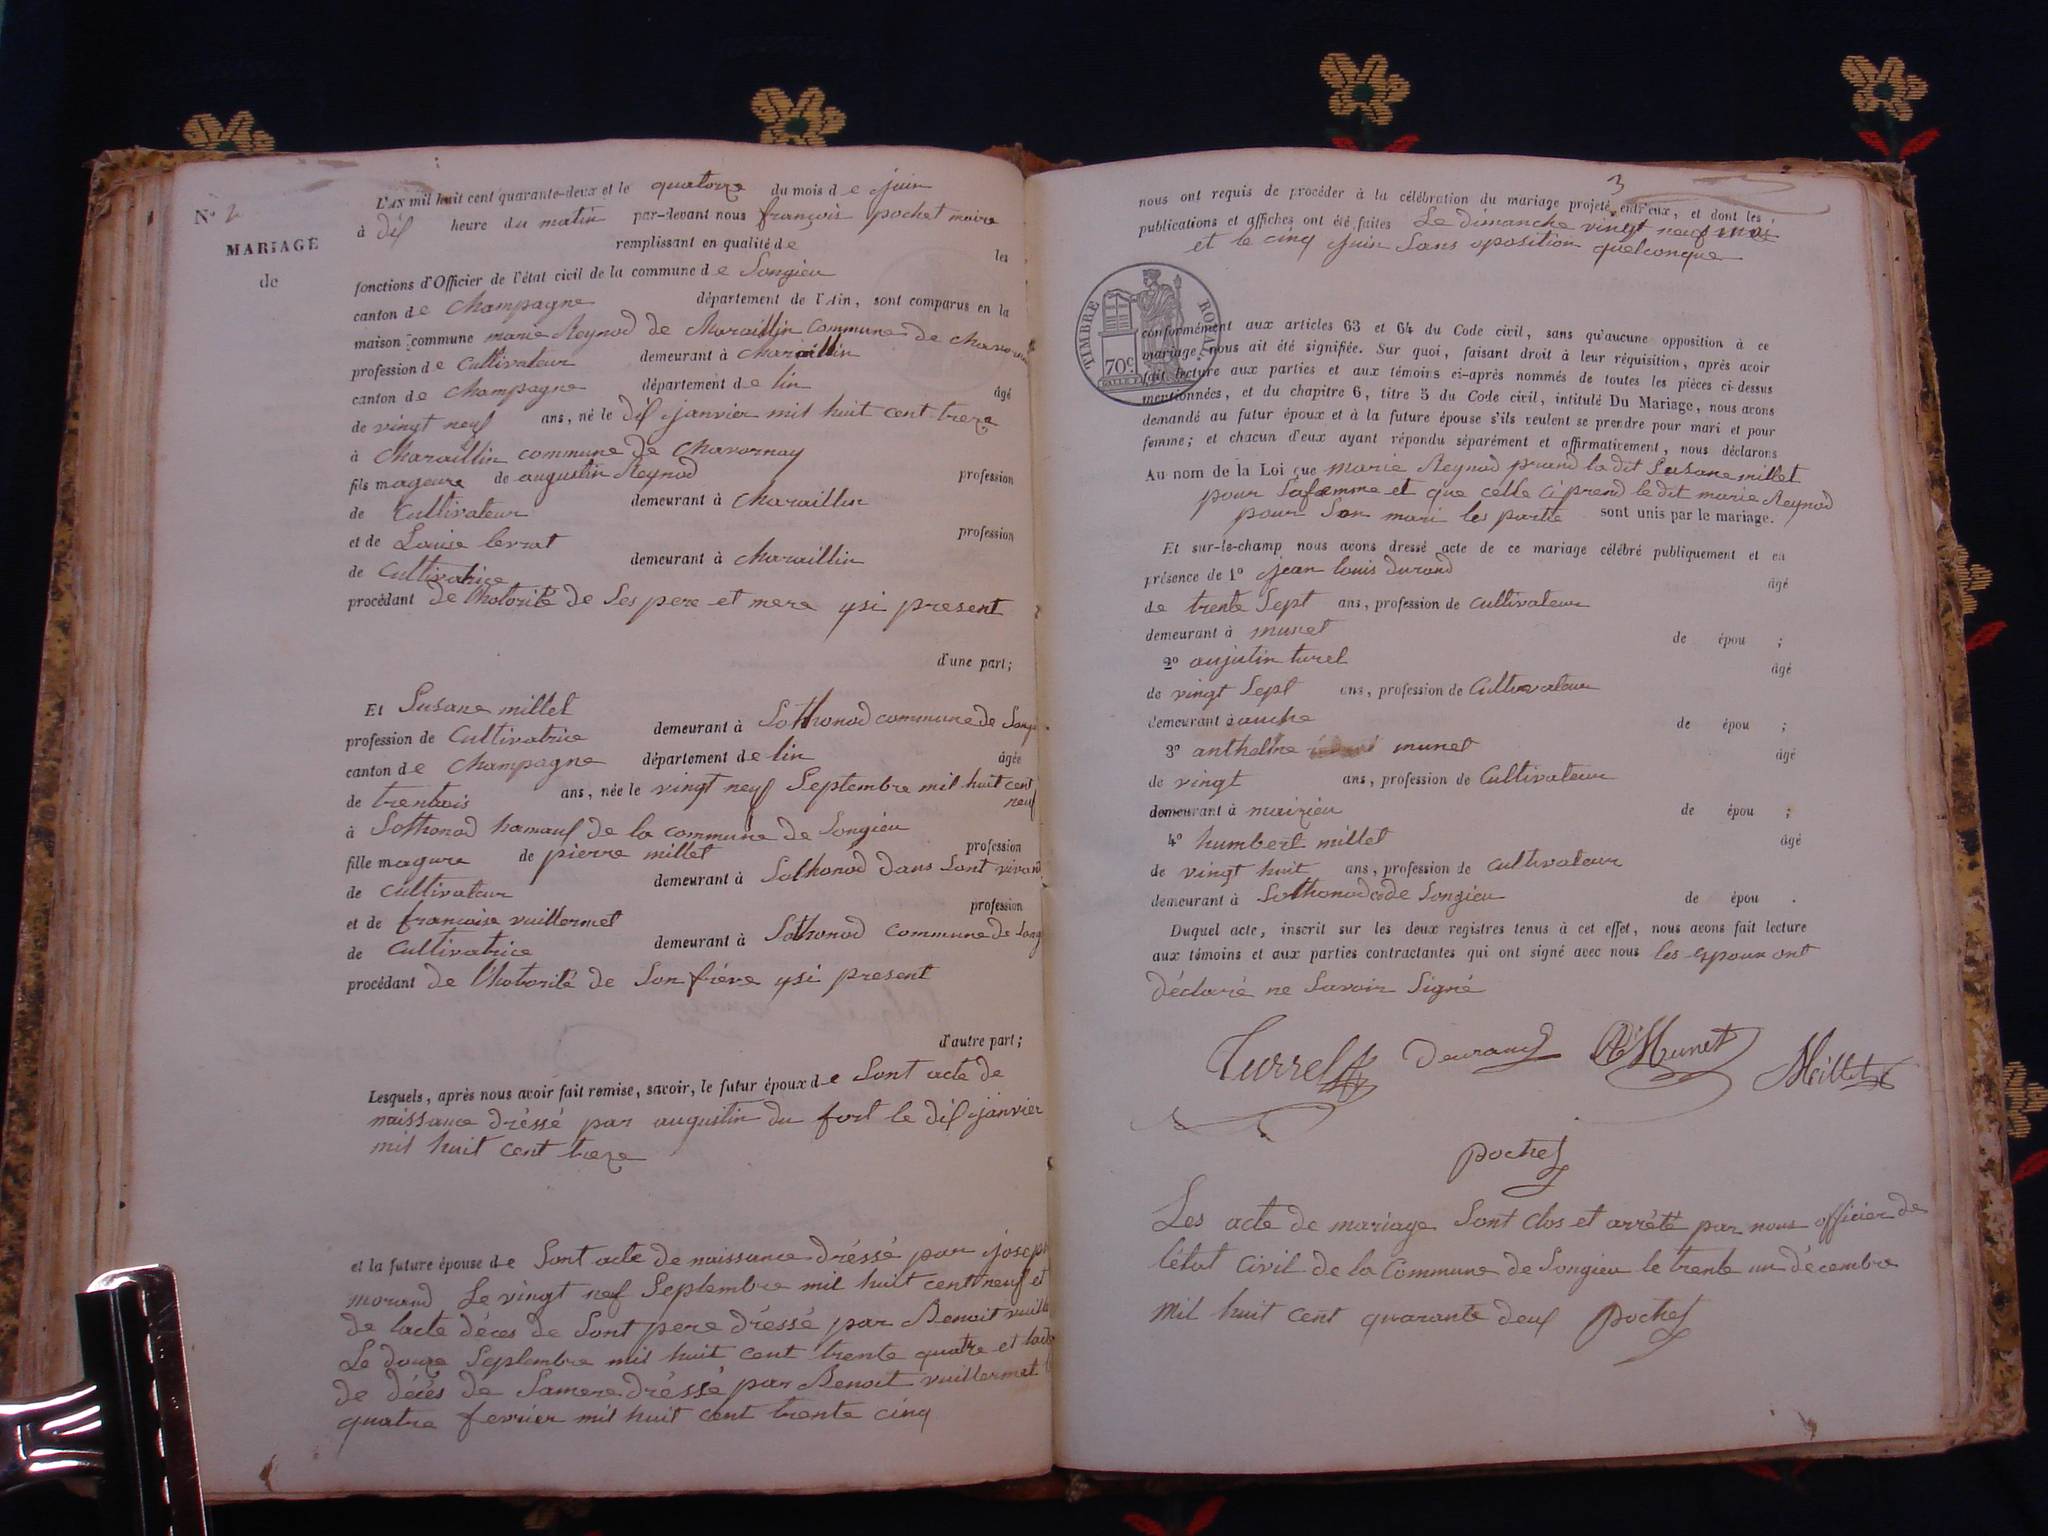 N° 2
MARIAGE
de
L'AN mil huit cent quarante-deux et le quatorze du mois de juin
à dix heure du matin par-devant nous françois pochet maire
remplissant en qualité de les
fonctions d'Officier de l'état civil de la commune de Songieu
canton de Champagne département de l'Ain, sont comparus en la
maison commune marie Reynod de Charaillin Commune de
profession de Cultivateur demeurant à Charaillin
canton de Champagne département de lin âgé
de vingt neuf ans, né le dix janvier mil huit cent treze
à Charaillin commune de Chavornay
fils mageure de augustin Reynod profession
de Cultivateur demeurant à Charaillin
et de Louise levrat profession
de Cultivatrice demeurant à Charaillin
procédant de l'hotorité de Ses pere et mere ysi present
d'une part;
Et Susane millet
profession de Cultivatrice demeurant à Sothonod commune de
canton de Champagne département de lin âgée
de trentrois ans, née le vingt neuf Septembre mil huit cent
neuf
à Sothonod hamauf de la commune de Songieu
fille magure de pierre millet profession
de Cultivateur demeurant à Sothonod dans Sont
et de francoise vuillermet profession
de Cultivatrice demeurant à Sothonod commune de
procédant de l'hotorité de Son frére ysi present
d'autre part;
Lesquels, après nous avoir fait remise, savoir, le futur époux de Sont acte de
naissance dréssé par augustin du fort le dix janvier
mil huit cent treze
et la future épouse de Sont acte de naissance dréssé par
morand Le vingt nef Septembre mil huit cent neuf et
de lacte déces de Sont pere dréssé par Benoit
Le douze Septembre mil huit cent trente quatre et
de décés de Samere dréssé par Benoit vuillermet
quatre fevrier mil huit cent trente cinq
3
nous ont requis de procéder à la célébration du mariage projeté entr'eux, et dont les
publications et affiches ont été faites Le dimanche vingt neuf mai
et le cinq juin Sans oposition quelconque
TIMBRE ROYAL
70c
conformément aux articles 63 et 64 du Code civil, sans qu'aucune opposition à ce
mariage, nous ait été signifiée. Sur quoi, faisant droit à leur réquisition, après avoir
fait lecture aux parties et aux témoins ci-après nommés de toutes les pièces ci-dessus
mentionnées, et du chapitre 6, titre 5 du Code civil, intitulé Du Mariage, nous avons
demandé au futur époux et à la future épouse s'ils veulent se prendre pour mari et pour
femme; et chacun d'eux ayant répondu séparément et affirmativement, nous déclarons
Au nom de la Loi que marie Reynod prand la dit Susane millet
pour Safemme et que celle ci prend le dit marie Reynod
pour Son mari les partie sont unis par le mariage.
Et sur-le-champ nous avons dressé acte de ce mariage célébré publiquement et en
présence de 1° jean louis durand âgé
de trente Sept ans, profession de Cultivateur
demeurant à munet de épou ;
2° aujutin turel âgé
de vingt Sept ans, profession de Cultivateur
demeurant à auche de épou ;
3° anthelme munet âgé
de vingt ans, profession de Cultivateur
demeurant à mairieu de épou ;
4° humbert millet âgé
de vingt huit ans, profession de Cultivateur
demeurant à Sothonod code Songieu de épou .
Duquel acte, inscrit sur les deux registres tenus à cet effet, nous avons fait lecture
aux témoins et aux parties contractantes qui ont signé avec nous les epoux ont
déclaré ne Savoir Signé
Turrel Deurand A Munet Millet
pochet
Les acte de mariage Sont clos et arrété par nous officier de
l'état Civil de la Commune de Songieu le trente un décembre
mil huit cent quarante deux pochet